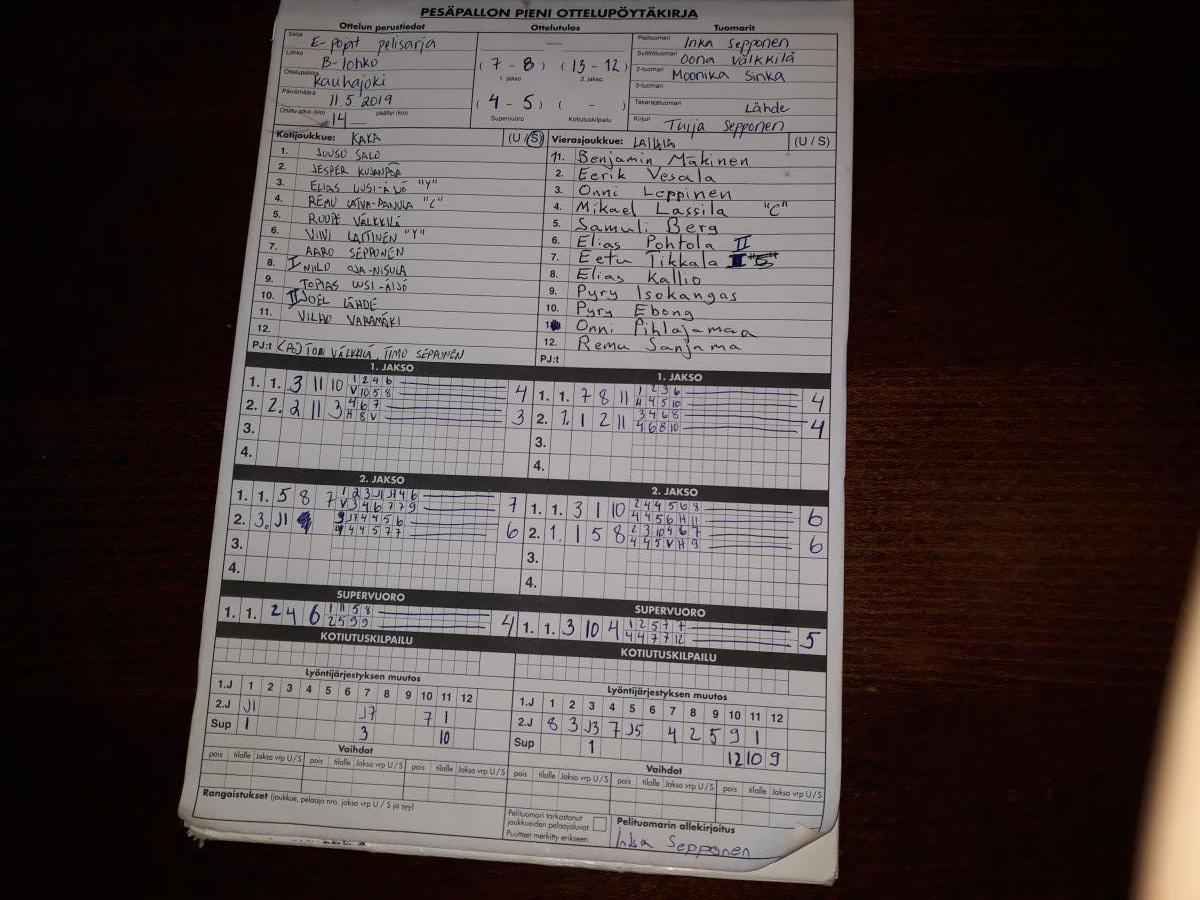 PESÄPALLON PIENI OTTELUPÖYTÄKIRJA
Ottelun perustiedot Ottelutulos Tuomarit
Sarja E-pojat pelisarja
Lohko B-lohko
Ottelupaikka Kauhajoki
Päivämäärä 11.5 2019
Ottelu alkoi (klo) 14 päättyi (klo)
(7 - 8) (13 - 12)
1. jakso 2. jakso
(4 - 5) ( - )
Supervuoro Kotiutuskilpailu
Pelituomari Inka Sepponen
Syöttötuomari Oona Välkkilä
2-tuomari Moonika Sinka
3-tuomari
Takarajatuomari Lähde
Kirjuri Tuija Sepponen
Kotijoukkue: KAKA (U / S)
1. JUUSO SALO
2. JESPER KUJANPÄÄ
3. ELIAS UUSI-ÄIJÖ "Y"
4. REMU LATVA-PANULA "C"
5. ROOPE VÄLKKILÄ
6. VIIVI LAITINEN "Y"
7. AARO SEPPONEN
8. I NIILO OJA-NISULA
9. TOPIAS UUSI-ÄIJÖ
10. II JOEL LÄHDE
11. VILHO VARAMÄKI
12.
PJ:t TONI VÄLKKILÄ, TIMO SEPPONEN
Vierasjoukkue: (U / S)
11. Benjamin Mäkinen
2. Eerik Vesala
3. Onni Leppinen
4. Mikael Lassila "C"
5. Samuli Berg
6. Elias Pohtola II
7. Eetu Tikkala
8. Elias Kallio
9. Pyry Isokangas
10. Pyry Ebong
Onni Pihlajamaa
12. Remu Sanjama
PJ:t
1. JAKSO 1. JAKSO
1. 1. 3 11 10 1 2 4 6 4
V 10 5 8
2. 2. 2 11 3 4 6 7 3
H 8 V
3.
4.
1. 1. 7 8 11 1 2 3 6 4
4 4 5 10
2. 1. 1 2 11 3 4 6 8 4
4 6 8 10
3.
4.
2. JAKSO 2. JAKSO
1. 1. 5 8 7 1 2 3 J1 J7 4 6 7
V 3 4 6 7 7 9
2. 3. J1 3 J7 4 4 5 6 6
4 4 4 5 7 7
3.
4.
1. 1. 3 1 10 2 4 4 5 6 8 6
4 4 5 6 H 11
2. 1. 1 5 8 2 3 10 4 6 7 6
4 4 5 V H 9
3.
4.
SUPERVUORO SUPERVUORO
1. 1. 2 4 6 1 11 5 8 4
2 5 9 9
1. 1. 3 10 4 1 2 5 7 7 5
4 4 7 7 12
KOTIUTUSKILPAILU KOTIUTUSKILPAILU
Lyöntijärjestyksen muutos
1.J 1 2 3 4 5 6 7 8 9 10 11 12
2.J J1 J7 7 1
Sup 1 3 10
Lyöntijärjestyksen muutos
1.J 1 2 3 4 5 6 7 8 9 10 11 12
2.J 8 3 J3 7 J5 4 2 5 9 1
Sup 1 12 10 9
Vaihdot Vaihdot
pois tilalle Jakso vrp U/S pois tilalle Jakso vrp U/S pois tilalle Jakso vrp U/S
pois tilalle Jakso vrp U/S pois tilalle Jakso vrp U/S pois tilalle Jakso vrp U/S
Rangaistukset (joukkue, pelaaja nro, jakso vrp U / S ja syy)
Pelituomari tarkastanut
joukkueiden pelaajaluvat.
Puutteet merkitty erikseen.
Pelituomarin allekirjoitus
Inka Sepponen